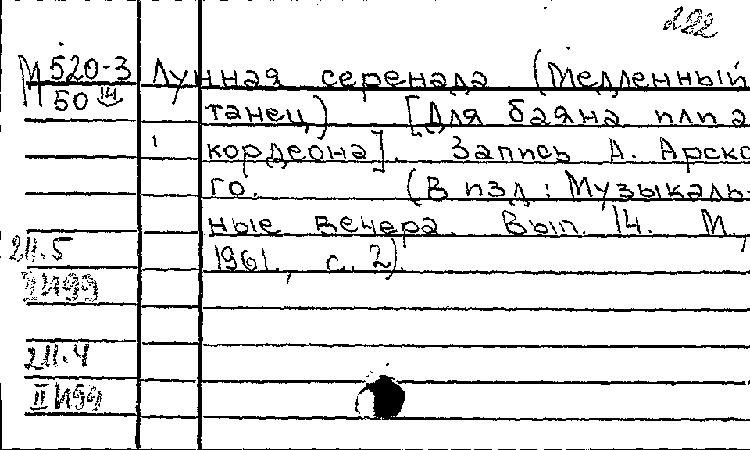 222
М 520-3 Лунная серенада. (Медленный
50 III танец) [Для баяна или а
кордеона]. Запись А. Арско
го. (В изд.: Музыкаль-
ные вечера. Вып. 14. М.,
1961, с. 2)
24.5
II И99
24.4
II И99